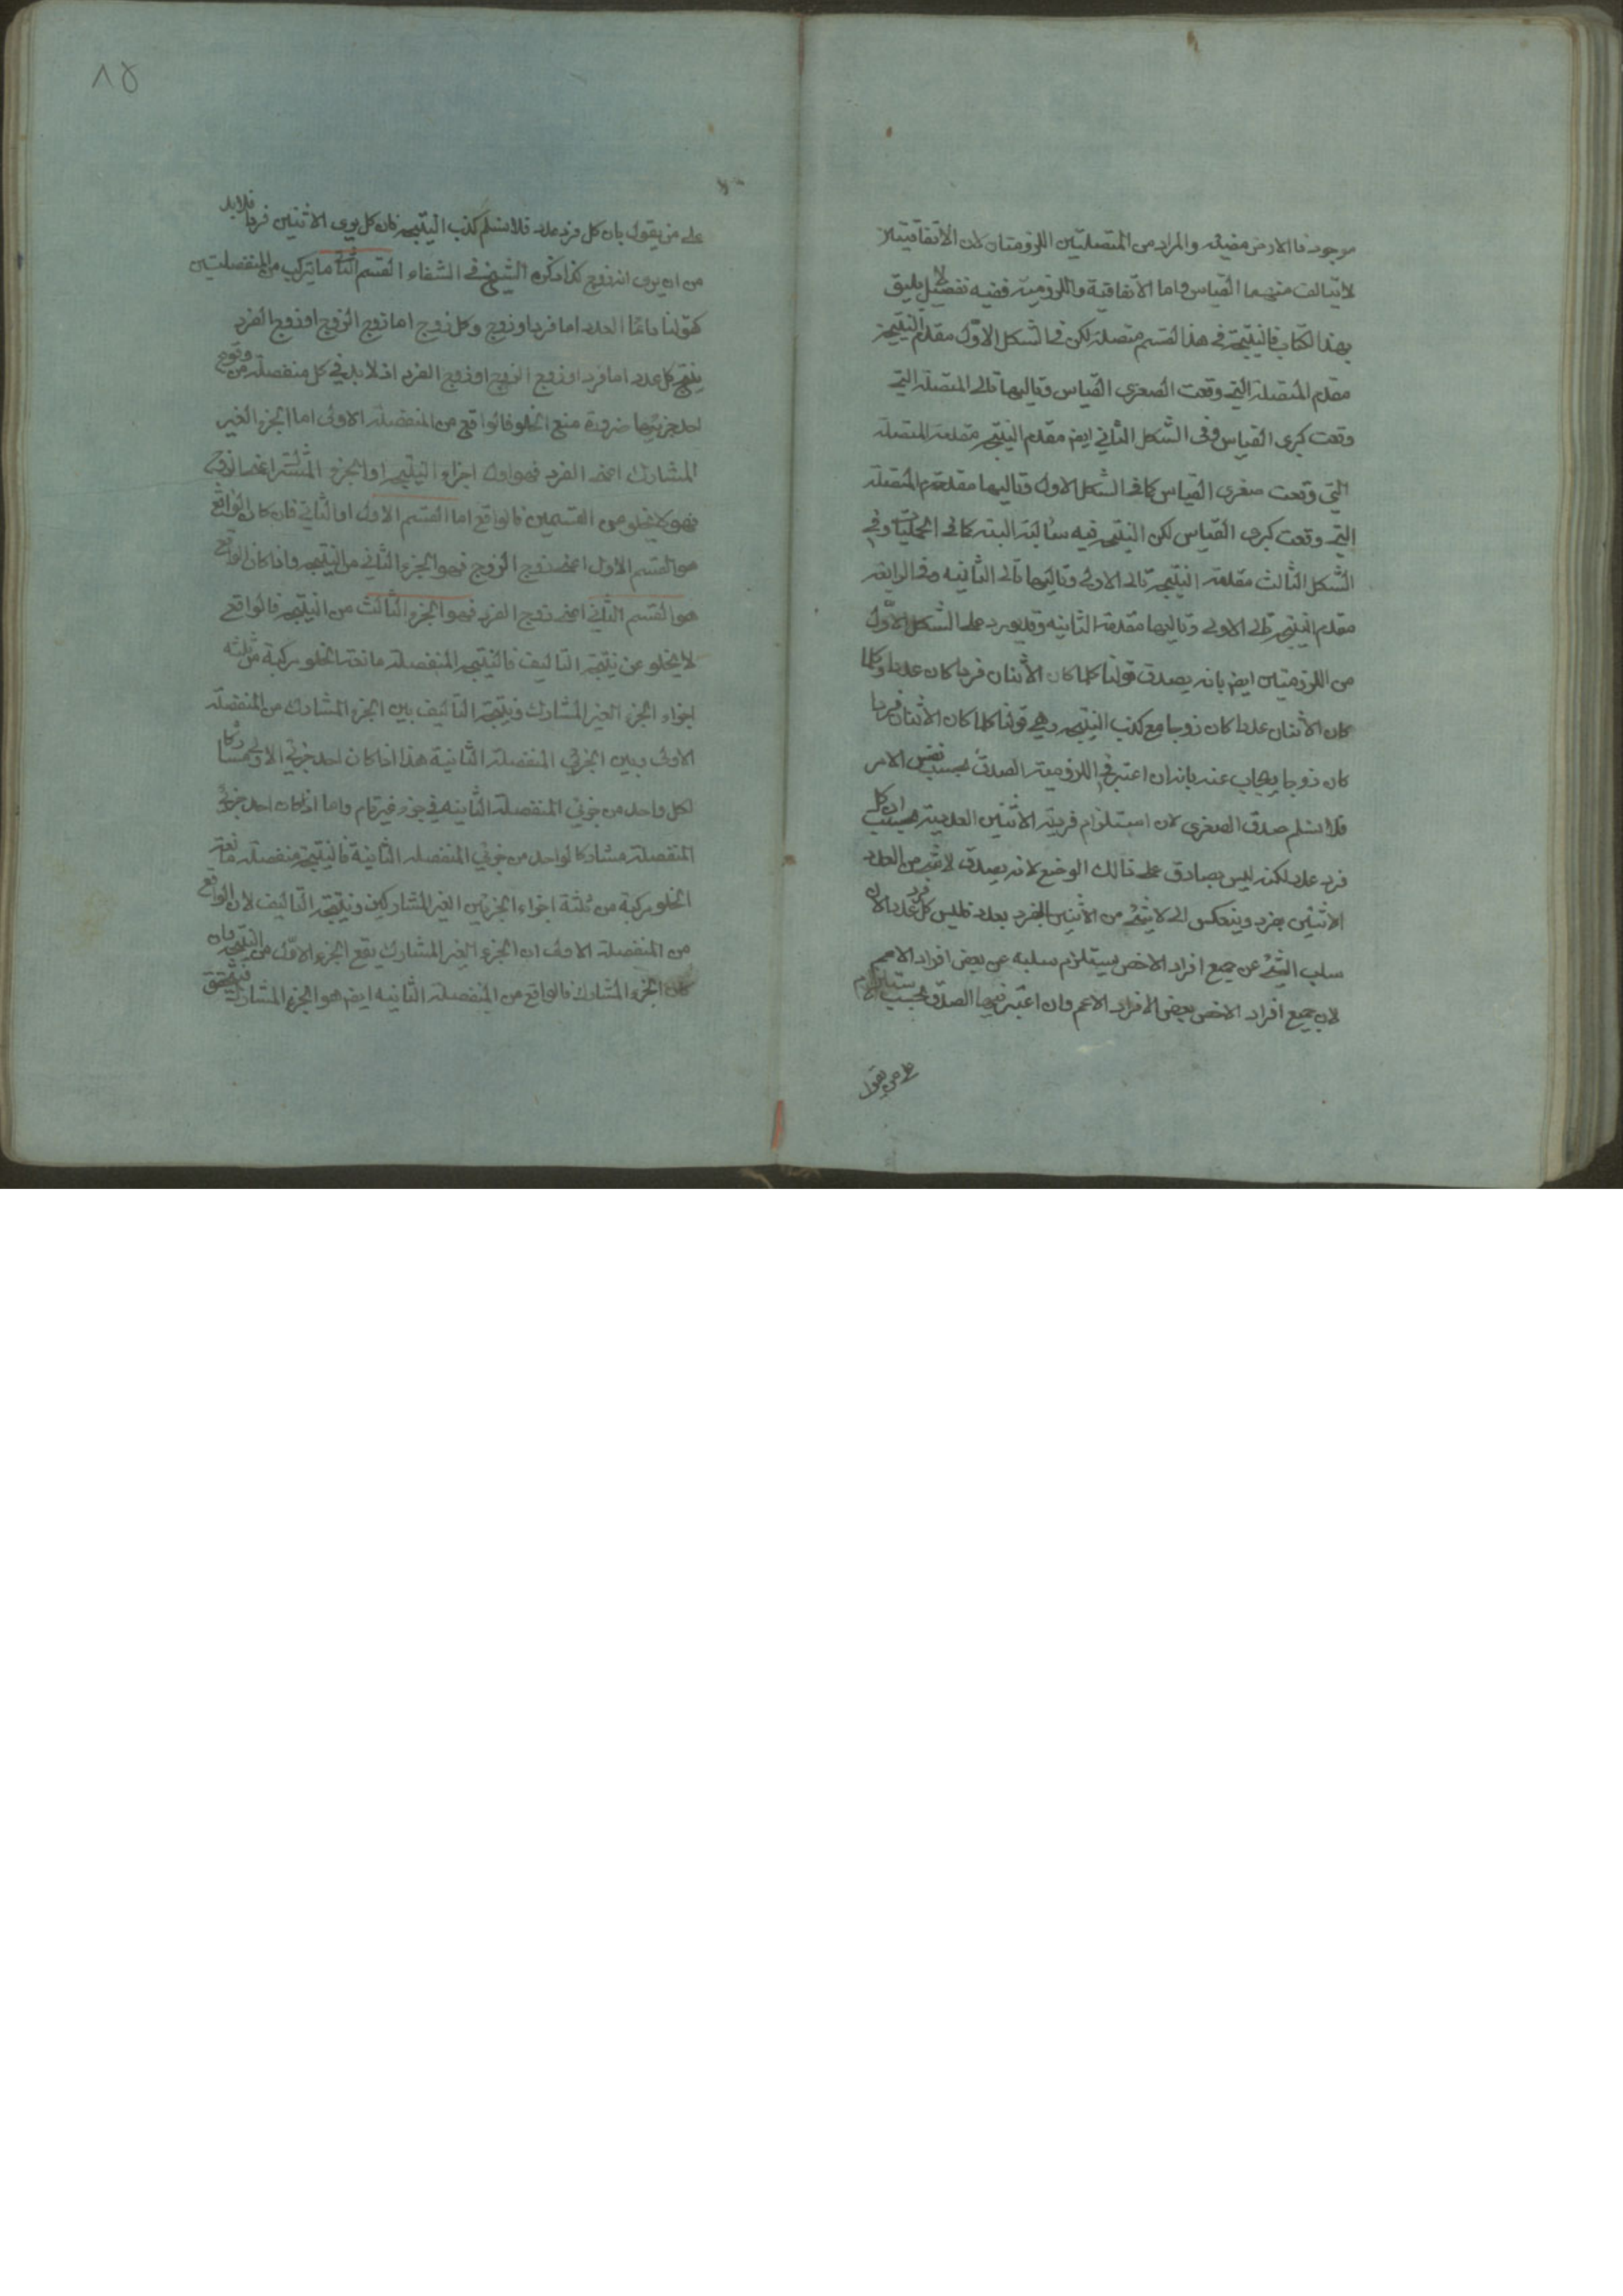 موجود فالارض مضيئة والمراد من المتصلتين اللزوميتان لان الاتفاقيتين
لا يتالف منهما القياس واما الاتفاقية واللزومية ففيه تفصيل لا يليق
بهذا الكتاب فالنتيجة في هذا القسم متصلة لكن في الشكل الاول مقدم النتيجة
مقدم المتصلة التي وقعت الصغرى القياس وتاليها تالى المتصلة التي
وقعت كبرى القياس وفى الشكل الثاني ايضا مقدم النتيجة مقدمة المتصلة
التي وقعت صغرى القياس كما في الشكل الاول وتاليها مقدمة المتصلة
التي وقعت كبرى القياس لكن النتيجة فيه سالبة البتة كما في الحمليات وفي
الشكل الثالث مقدمة النتيجة تالى الاولى وتاليها تالى الثانيه وفى الرابعة
مقدم النتيجة تالى الاولى وتاليها مقدمة الثانية وقد يورد على الشكل الاول
من اللزوميتين ايضا بانه يصدق قولنا كلما كان الاثنان فردا كان عددا وكلما
كان الاثنان عددا كان زوجا مع كذب النتيجة وهي قولنا كلما كان الاثنان فردا
كان زوجا ويجاب عنه بانه ان اعتبر في اللزومية الصدق بحسب نفس الامر
فلا نسلم صدق الصغرى لان استلزام فردية الاثنين العددية بحسب ان كل
فرد عدد لكنه ليس بصادق على ذالك الوضع لانه يصدق لا شئ من العدد
الاثنين بفرد وينعكس الى لا شئ من الاثنين الفرد بعدد فليس كل فرد عددا لان
سلب الشئ عن جميع افراد الاخص يستلزم سلبه عن بعض افراد الاعم
لان جميع افراد الاخص بعض الافراد الاعم وان اعتبر فيها الصدق بحسب الالزام
على من يقول
٨٥
على من يقول بان كل فرد عدد فلا نسلم كذب النتيجة فان كل يرى الاثنين فردا فلا بد
من ان يرى انه زوج كذا ذكره الشيخ في الشفاء القسم الثاني ما يتركب من المنفصلتين
كقولنا دائما العدد اما فرد او زوج وكل زوج اما زوج الزوج او زوج الفرد
ينتج كل عدد اما فرد او زوج الزوج او زوج الفرد اذ لا بد في كل منفصلة من وقوع
احد جزئيها ضرورة منع الخلو فالواقع من المنفصلة الاولى اما الجزء الغير
المشارك اعنى الفرد فهو اول اجزاء النتيجة او الجزء المشترك اعنى الزوج
فهو لا يخلو من القسمين فالواقع اما القسم الاول او الثاني فان كان الواقع
هو القسم الاول اعنى زوج الزوج فهو الجزء الثاني من النتيجة واذا كان الواقع
هو القسم الثاني اعنى زوج الفرد فهو الجزء الثالث من النتيجة فالواقع
لا يخلو عن نتيجة التاليف فالنتيجة المنفصلة مانعة الخلو مركبة من ثلثه
اجزاء الجزء الغير المشارك ونتيجة التاليف بين الجزء المشارك من المنفصلة
الاولى وبين الجزئي المنفصلة الثانية هذا اذا كان احد جزئي الاولى مشاركا
لكل واحد من جزئي المنفصلة الثانيه في جزء غير تام واما اذا كان احد جزئي
المنفصلة مشاركا لواحد من جزئي المنفصلة الثانية فالنتيجة منفصلة مانعة
الخلو مركبة من ثلثة اجزاء الجزئين الغير المشاركين ونتيجة التاليف لان الواقع
من المنفصلة الاولى ان الجزء الغير المشارك يقع الجزء الاول من النتيجة وان
كان الجزء المشارك فالواقع من المنفصلة الثانيه ايضا هو الجزء المشارك فيتحقق